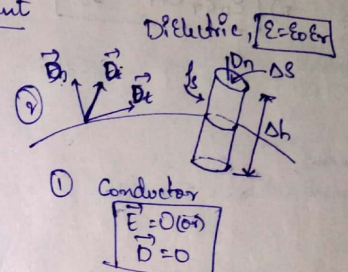 ut
Dielectric, ε=ε₀εᵣ
D⃗n D⃗i D⃗t
ρs Dn ΔS
②
Δh
① Conductor
E⃗=0(or)
D⃗=0